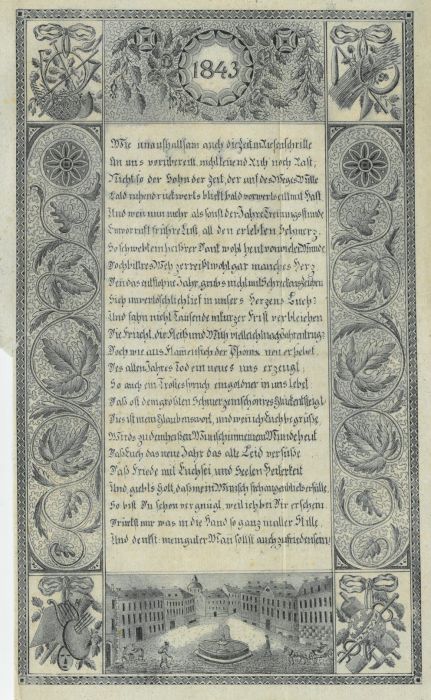 1843
Wie unaufhaltsam auch die Zeit in Riesenschritte
An uns vorübereilt, nicht kennend Ruh noch Rast,
Nicht so der Sohn der Zeit, der auf des Weges Mitte
Bald ruhend rückwerts blickt bald vorwerts eilt mit Hast
Und wen nun mehr als sonst der Jahre Trennungsstunde
Empor ruft frühre Lust, all den erlebten Schmerz,
So schwebt ein heißrer Dank wohl heut von vieler Munde
Doch bittres Weh zerreißt wohl gar manches Herz
Den das entflohne Jahr, grub's nicht mit Schreckenszeichen
Sich unverlöschlich tief in unsers Herzens Buch?
Und sahn nicht Tausende in kurzer Frist verbleichen
Die Frucht, die Fleiß und Müh vielleicht nach Jahren trug?
Doch wie aus Flamen sich der Phönix neu erhebet
Des alten Jahres Tod ein neues uns erzeugt,
So auch ein Trostesspruch ein goldner in uns lebet
Daß oft dem größten Schmerz ein schönres Glück entsteigt
Dies ist mein Glaubenswort, und wen ich Euch begrüße
Wird's zu dem heißen Wunsch in meinem Munde heut
Daß Euch das neue Jahr das alte Leid versüße
Daß Friede mit Euch sei und Seelen Heiterkeit
Und giebt's Gott, daß mein Wunsch sich ganz erfülle,
So bist Du schon vergnügt, weil ich bei Dir erschein
Drückst mir was in die Hand so ganz in aller Stille,
Und denkst: mein guter Man sollst auch zufrieden sein!